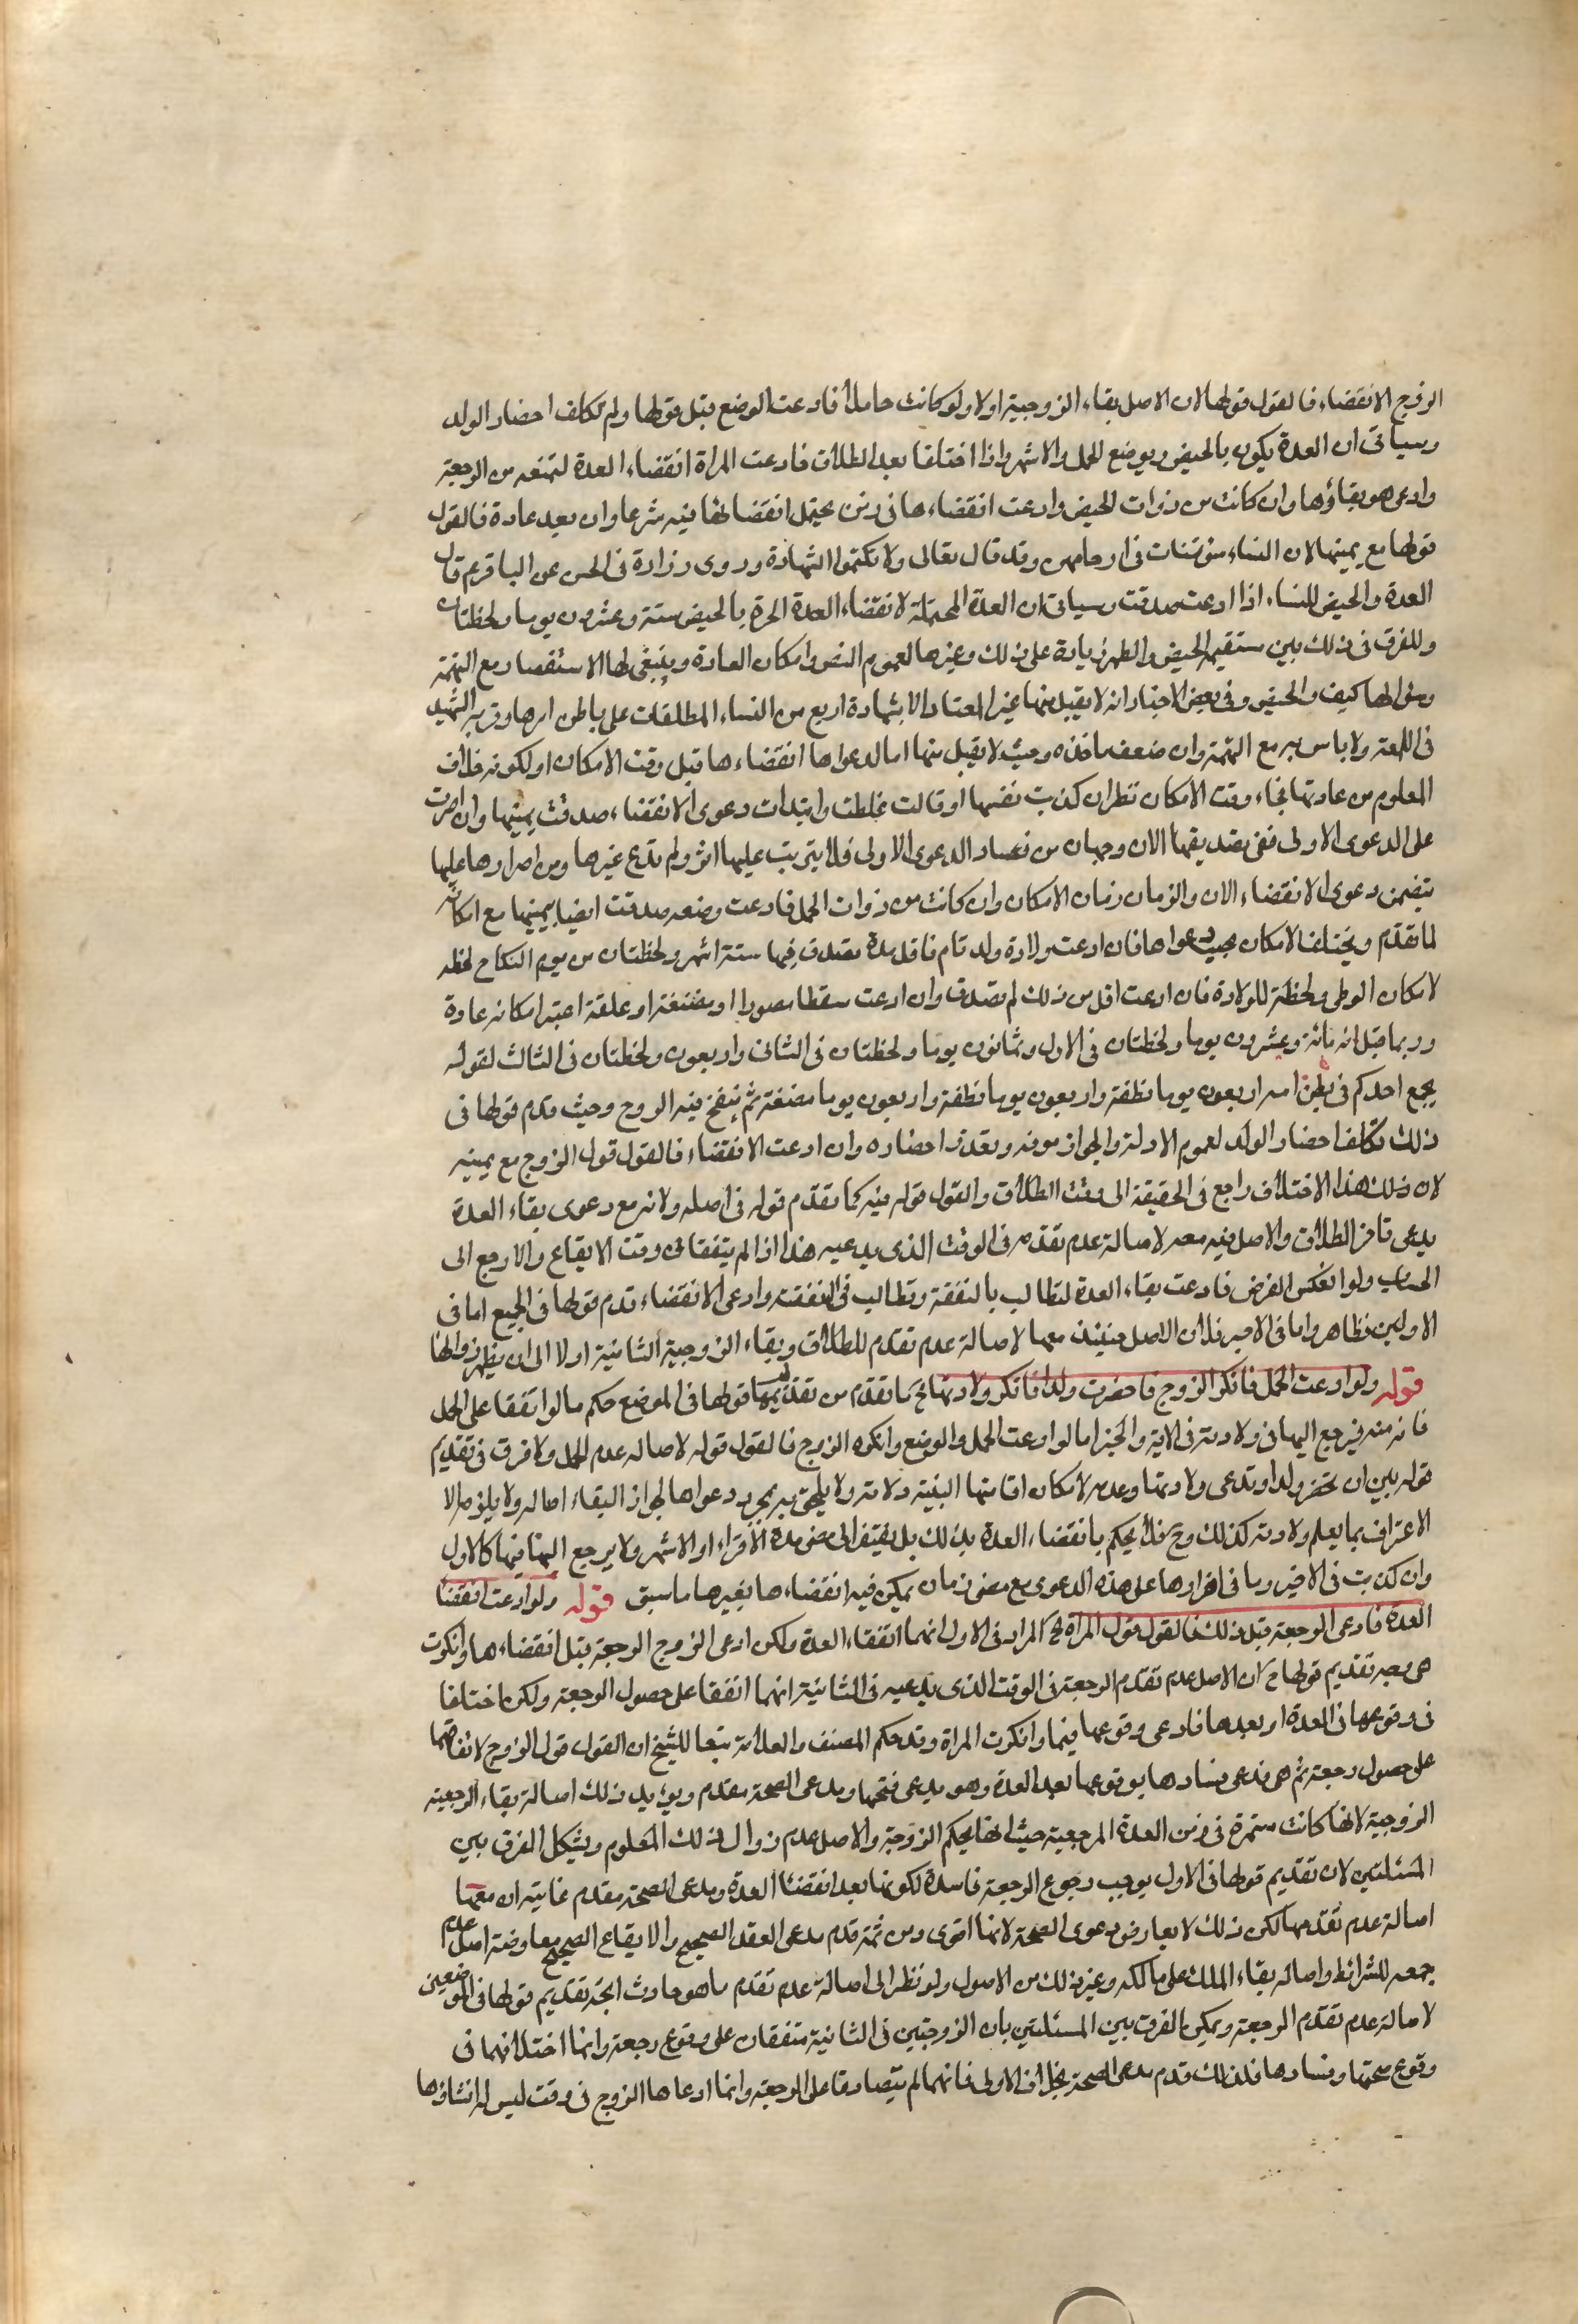 الزوج الانقضاء فالقول قولها لان الاصل بقاء الزوجية اولا ولو كانت حاملا فادعت الوضع قبل قولها ولم تكلف احضار الولد
وسياتى ان العدة يكون بالحيض وبوضع الحمل والاشهر واذا اختلفا بعد الطلاق فادعت المراة انقضاء العدة لتمنعه من الرجعة
وادعى هو بقاؤها وان كانت من ذوات الحيض وادعت انقضاءها فى زمن يحتمل انقضائها فيه شرعا وان بعد عادة فالقول
قولها مع يمينها لان النساء مؤتمنات فى ارحامهن وقد قال تعالى ولا تكتموا الشهادة وروى زرارة فى الحسن عن الباقر ع قال
العدة والحيض للنساء اذا ادعت صدقت وسياتى ان العدة المحتملة لانقضاء العدة الحرة بالحيض ستة وعشرون يوما ولحظتان
ولا فرق فى ذلك بين مستقيمة الحيض والطهر زيادة على ذلك وغيرها لعموم النص وامكان العادة وينبغى لها الاستقصار مع التهمة
وسؤالها كيف الحيض وفى بعض الاخبار انه لا يقبل منها غير المعتاد الا بشهادة اربع من النساء المطلعات على باطن امرها وقربه الشهيد
فى اللمعة ولا باس به مع التهمة وان ضعف ماخذه وحيث لا يقبل منها اما لدعواها انقضاءها قبل وقت الامكان او لكونه خلاف
المعلوم من عادتها فجاء وقت الامكان نظر ان كذبت نفسها او قالت غلطت وابتدات دعوى الانقضاء صدقت بيمينها وان اصرت
على الدعوى الاولى ففى تصديقها الان وجهان من فساد الدعوى الاولى فلا يترتب عليها اثر ولم تدع غيرها ومن اصرارها عليها
يتضمن دعوى الانقضاء الان والزمان زمان الامكان وان كانت من ذوات الحمل فادعت وضعه صدقت ايضا بيمينها مع امكانه
لما تقدم ويختلف الامكان بحسب دعواها فان ادعت ولادة ولد تام فاقل مدة تصدق فيها ستة اشهر ولحظتان من يوم النكاح لحظه
لامكان الوطى ولحظة للولادة فان ادعت اقل من ذلك لم تصدق وان ادعت سقطا مصورا او مضغة او علقة اعتبر امكانه عادة
وربما قيل انه مائة وعشرون يوما ولحظتان فى الاول وثمانون يوما ولحظتان فى الثانى واربعون ولحظتان فى الثالث لقوله
يجمع احدكم فى بطن امه اربعون يوما نطفة واربعون يوما نطفة واربعون يوما مضغة ثم ينفخ فيه الروح وحيث قدم قولها فى
ذلك تكلف احضار الولد لعموم الادلة والجواز موته وتعذر احضاره وان ادعت الانقضاء فالقول قول الزوج مع يمينه
لان ذلك هذا الاختلاف راجع فى الحقيقة الى وقت الطلاق والقول قوله فيه كما تقدم قوله فى اصله ولانه مع دعوى بقاء العدة
يدعى تاخر الطلاق والاصل فيه معه لاصالة عدم تقدمه فى الوقت الذى يدعيه هذا اذا لم يتفقا فى وقت الايقاع والا رجع الى
الحساب ولو انعكس الفرض فادعت بقاء العدة لتطالب بالنفقة وتطالب فى النفقة وادعى الانقضاء قدم قولها فى الجميع اما فى
الاولين فظاهر واما فى الاخير فلان الاصل حينئذ معها لاصالة عدم تقدم الطلاق وبقاء الزوجية الثانية اولا الى ان يظهر زوالها
قوله ولو ادعت الحمل فانكر الزوج فاحضرت ولدا فانكر ولادتها الخ ما تقدم من تقديم قولها فى الموضع حكم ما لو اتفقا على الحمل
فانه منه فيرجع اليها فى ولادته فى الاية والخبر اما لو ادعت الحمل والوضع وانكره الزوج فالقول قوله لاصاله عدم الحمل ولا فرق فى تقديم
قوله بين ان تحضر ولدا وتدعى ولادتها وعدمه لامكان اقامتها البينة ولادته ولا يلحق به بمجرد دعواها لجواز البقاء اصاله ولا يلزمه الا
الاعتراف بما يعلم ولادته كذلك وح فلا يحكم بانقضاء العدة بذلك بل يفتقر الى مضى مدة الاقراء او الاشهر ولا يرجع اليها فيها كالاول
وان كذبت فى الاخير وما فى اقرارها على هذه الدعوى مع مضى زمان يمكن فيه انقضاءها بغيرها ما سبق قوله ولو ادعت انقضاء
العدة فادعى الرجعة قبل ذلك فالقول قول المراة الخ المراد فى الاول انهما اتفقا العدة ولكن ادعى الزوج الرجعة قبل انقضاءها وانكرت
هى وجه تقديم قولها ح ان الاصل عدم تقدم الرجعة فى الوقت الذى يدعيه فى الثانية انهما اتفقا على حصول الرجعة ولكن اختلفا
فى وقوعها فى العدة او بعدها فادعى وقوعها فيها وانكرت المراة وقد حكم المصنف والعلامة تبعا للشيخ ان القول قول الزوج لاتفاقهما
على حصول رجعة ثم هى تدعى فسادها بوقوعها بعد العدة وهو يدعى صحتها ومدعى الصحة مقدم ويؤيد ذلك اصالة بقاء الرجعية
الزوجية لانها كانت مستمرة فى زمن العدة المرجعية حيث انها بحكم الزوجة والاصل عدم زوال ذلك المعلوم ويشكل الفرق بين
المسئلتين لان تقديم قولها فى الاول يوجب رجوع الرجعة فاسدة لكونها بعد انقضاء العدة ومدعى الصحة مقدم غايته ان معها
اصالة عدم تقدمها لكن ذلك لا يعارض دعوى الصحة لانها اقوى ومن ثمة قدم مدعى العقد الصحيح والايقاع الصحيح معارضة اصل عدم
جمعه للشرائط واصاله بقاء الملك على مالكه وغير ذلك من الاصول ولو نظر الى اصالة عدم تقدم ما هو حادث اتجه تقديم قولها فى الموضعين
لاصالة عدم تقدم الرجعة ويمكن الفرق بين المسئلتين بان الزوجين فى الثانية متفقان على وقوع رجعة وانما اختلافهما فى
وقوع صحتها وفسادها فلذلك قدم مدعى الصحة بخلاف الاولى فانهما لم يتصادقا على الرجعة وانما ادعاها الزوج فى وقت ليس له انشاؤها